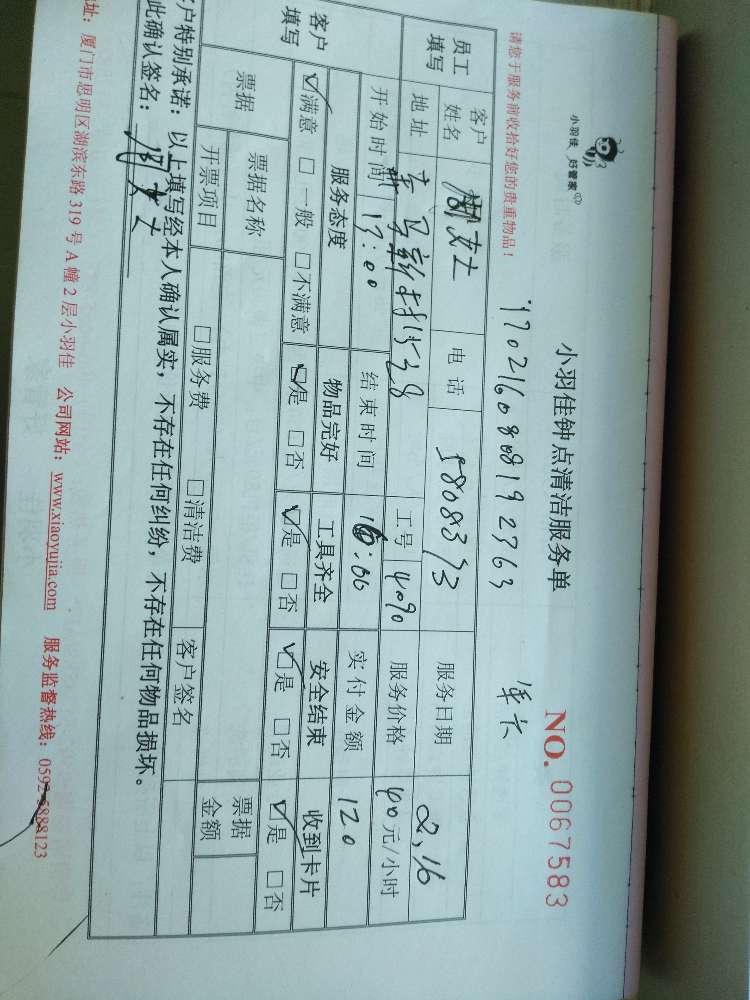 小羽佳 好管家
小羽佳钟点清洁服务单
NO. 0067583
请您于服务前收拾好您的贵重物品！
员工填写 客户姓名 女士 电话 服务日期 2,16
地址 工号 服务价格 40元/小时
客户填写 开始时间 结束时间 实付金额 120
服务态度 物品完好 工具齐全 安全结束 收到卡片
☑满意 □一般 □不满意 ☑是 □否 ☑是 □否 ☑是 □否 ☑是 □否
票据 票据名称 客户签名 票据金额
开票项目 □服务费 □清洁费
户特别承诺：以上填写经本人确认属实，不存在任何纠纷，不存在任何物品损坏。
此确认签名： 女士
址：厦门市思明区湖滨东路 319 号 A 幢 2 层小羽佳 公司网站：www.xiaoyujia.com 服务监督热线：0592-5888123